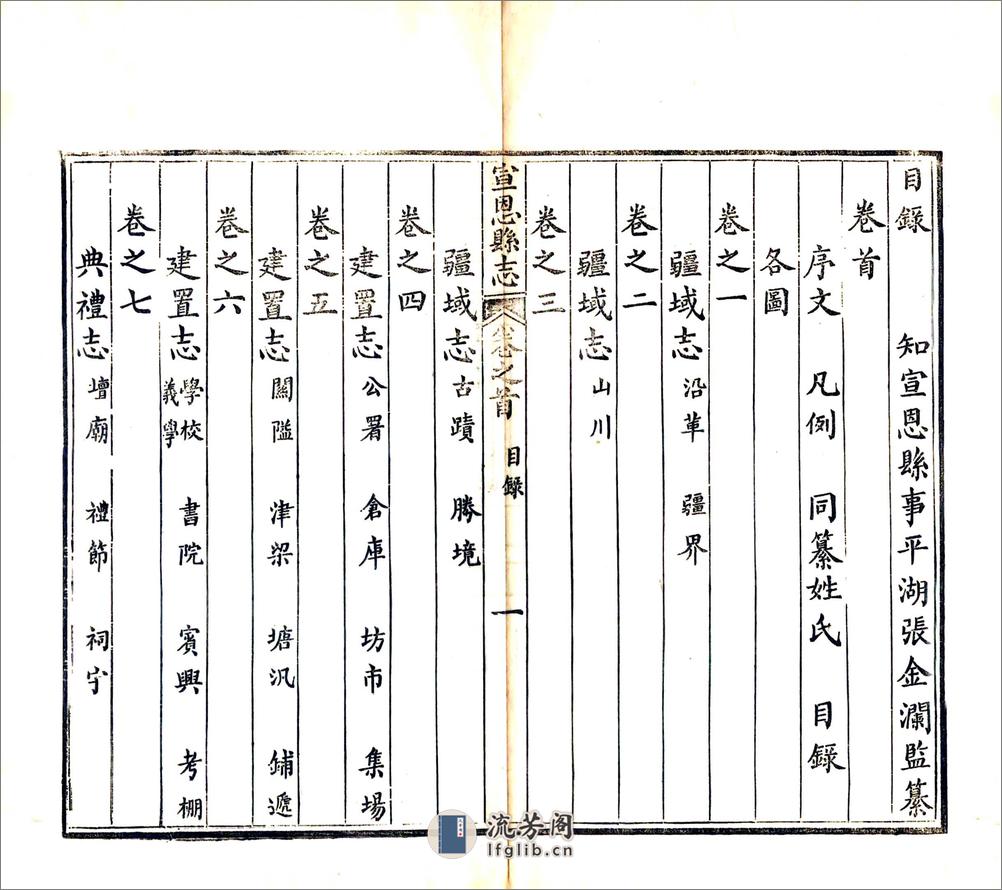 目錄　知宣恩縣事平湖張金瀾監纂
卷首
序文　凡例　同纂姓氏　目錄
各圖
卷之一
疆域志　沿革　疆界
卷之二
疆域志　山川
卷之三
宣恩縣志　卷之首　目錄　一
疆域志　古蹟　勝境
卷之四
建置志　公署　倉庫　坊市　集場
卷之五
建置志　關隘　津梁　塘汛　鋪遞
卷之六
建置志　學校　義學　書院　賓興　考棚
卷之七
典禮志　壇廟　禮節　祠宇
流芳阁
lfglib.cn